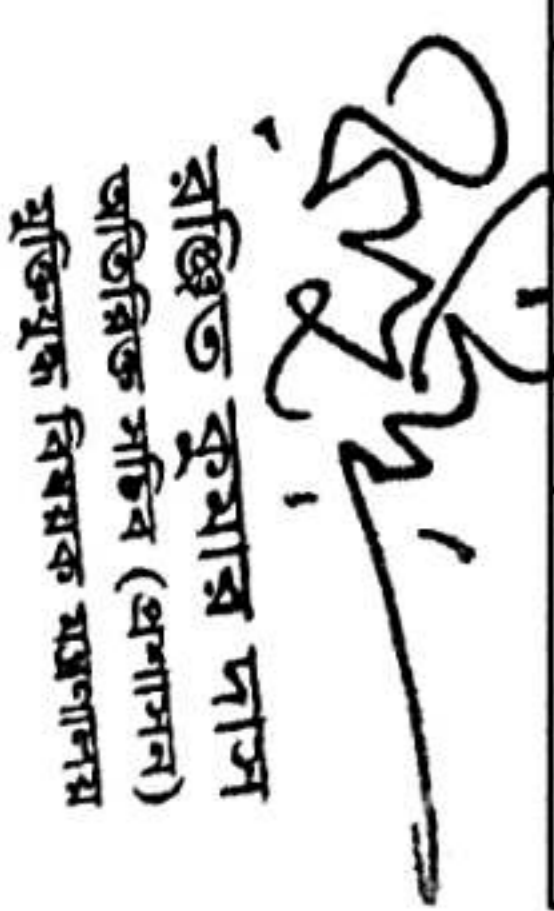 রঞ্জিত কুমার দাস
অতিরিক্ত সচিব (প্রশাসন)
মুক্তিযুদ্ধ বিষয়ক মন্ত্রণালয়